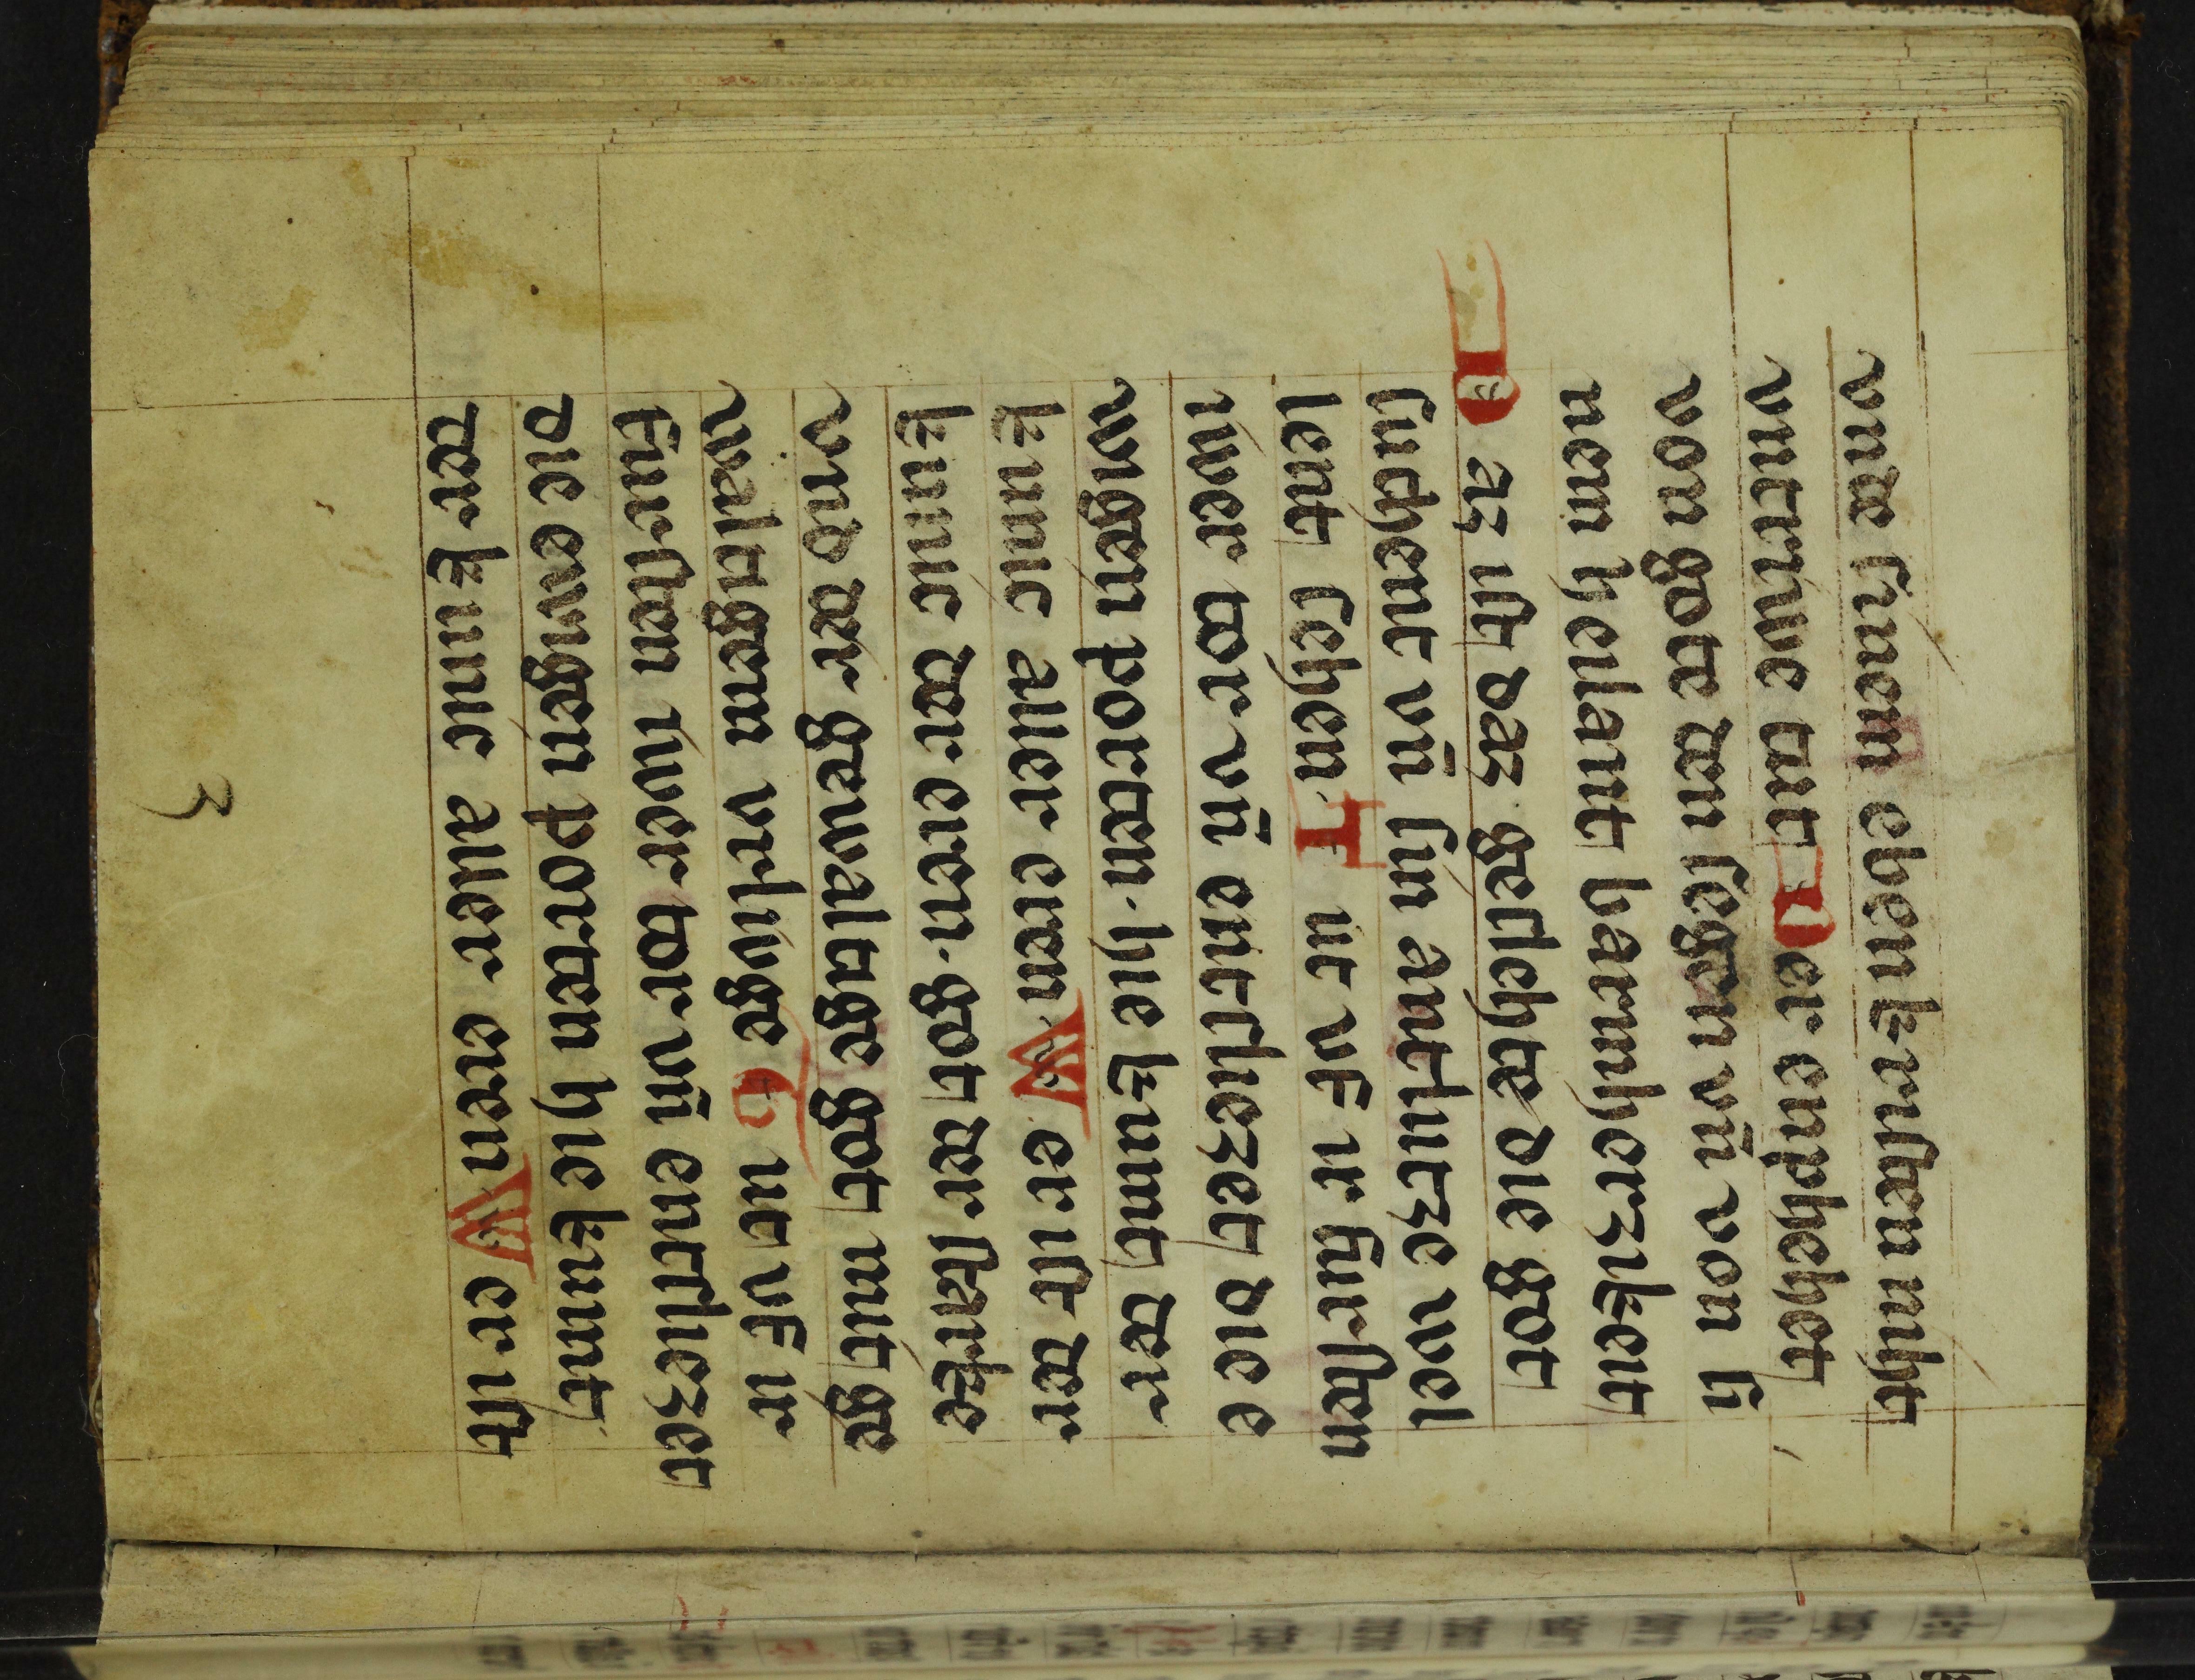 vnde sinem ebenkristen niht
vntriwe tut Der enphehet
von gote den segen vn̄ von si
nem heilant barmherzikeit
Daz ist daz geslehte die got
suchent vn̄ sin antlitze wol
lent sehen. Tut vf ir fursten
iwer tor vn̄ entsliezet die e
wigen porten. hie kumt der
kunic aller eren Wer ist der
kunic der eren. got der starke
vnd der gewaltige got mit ge
waltigem vrlivge Tut vf ir
fursten iwer tor vn̄ entsliezet
die ewigen porten hie kumt
der kunic aller eren Wer ist
3